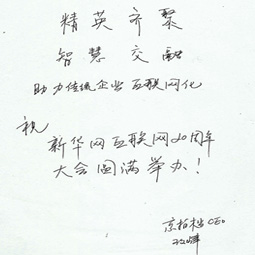 精英齐聚
智慧交融
助力传统企业互联网化
祝
新华网互联网20周年
大会圆满举办！
京柏 CEO